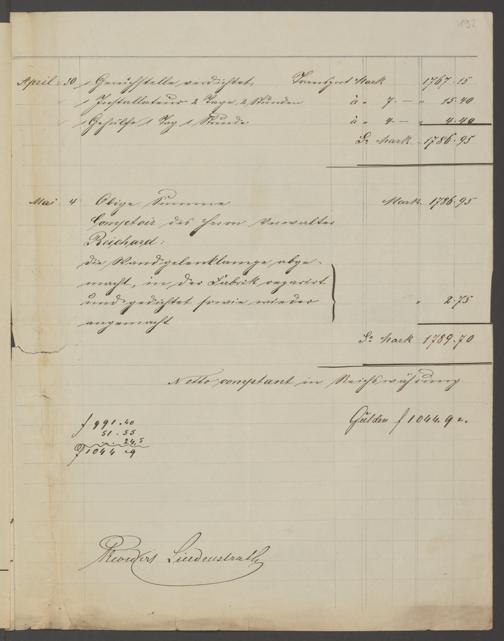 192
April 30 1 Geruchstelle verdichtet, Transport Mark 1767.15
1 Installateur 2 Tage, 2 Stunden à " 7.— " 15.40
1 Gehülfe 1 Tag 1 Stunde à " 4.— " 4.40
Sa Mark 1786.95
Mai 4 Obige Summe Mark 1786.95
Comptoir des Herrn Verwalter
Reichard:
die Wandgelenklampe abge-
macht, in der Fabrik reparirt
und gedichtet sowie wieder " 2.75
angemacht
Sa Mark 1789.70
Netto comptant in Reichswährung
Gulden f 1044.9 x.
f 991.40
51.55
24,5
f 1044 .9
Lindenstrath